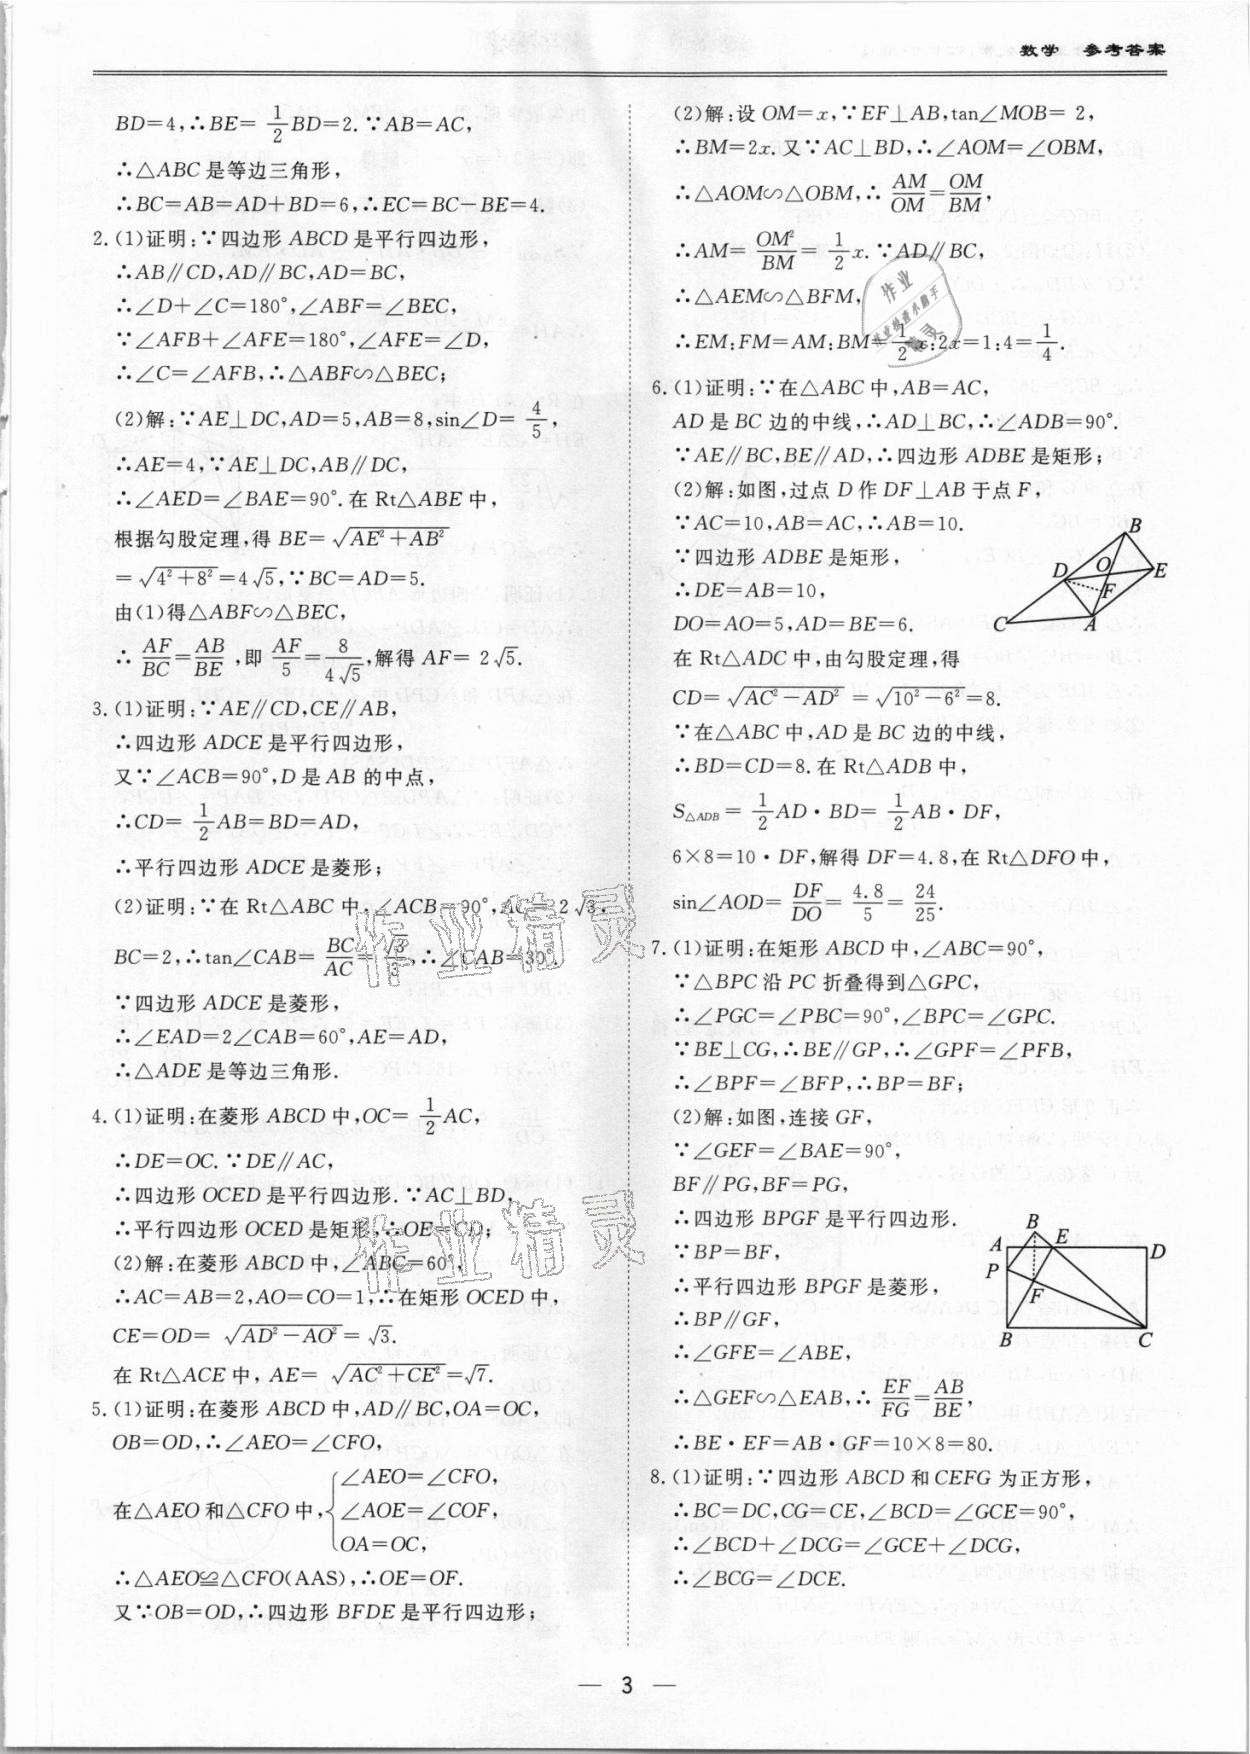 数学 参考答案
BD=4,∴BE= 1/2 BD=2.∵AB=AC,
∴△ABC 是等边三角形,
∴BC=AB=AD+BD=6,∴EC=BC-BE=4.
2.(1)证明:∵四边形 ABCD 是平行四边形,
∴AB∥CD,AD∥BC,AD=BC,
∴∠D+∠C=180°,∠ABF=∠BEC,
∵∠AFB+∠AFE=180°,∠AFE=∠D,
∴∠C=∠AFB,∴△ABF∽△BEC;
(2)解:∵AE⊥DC,AD=5,AB=8,sin∠D= 4/5,
∴AE=4,∵AE⊥DC,AB∥DC,
∴∠AED=∠BAE=90°.在 Rt△ABE 中,
根据勾股定理,得 BE= √(AE²+AB²)
=√(4²+8²)=4√5,∵BC=AD=5.
由(1)得△ABF∽△BEC,
∴ AF/BC=AB/BE ,即 AF/5=8/(4√5),解得 AF= 2√5.
3.(1)证明:∵AE∥CD,CE∥AB,
∴四边形 ADCE 是平行四边形,
又∵∠ACB=90°,D 是 AB 的中点,
∴CD= 1/2 AB=BD=AD,
∴平行四边形 ADCE 是菱形;
(2)证明:∵在 Rt△ABC 中,∠ACB=90°,AC= 2√3,
BC=2,∴tan∠CAB= BC/AC=√3/3,∴∠CAB=30°.
∵四边形 ADCE 是菱形,
∴∠EAD=2∠CAB=60°,AE=AD,
∴△ADE 是等边三角形.
4.(1)证明:在菱形 ABCD 中,OC= 1/2 AC,
∴DE=OC.∵DE∥AC,
∴四边形 OCED 是平行四边形.∵AC⊥BD,
∴平行四边形 OCED 是矩形,∴OE=CD;
(2)解:在菱形 ABCD 中,∠ABC=60°,
∴AC=AB=2,AO=CO=1,∴在矩形 OCED 中,
CE=OD= √(AD²-AO²)=√3.
在 Rt△ACE 中, AE= √(AC²+CE²)=√7.
5.(1)证明:在菱形 ABCD 中,AD∥BC,OA=OC,
OB=OD,∴∠AEO=∠CFO,
在△AEO 和△CFO 中,{∠AEO=∠CFO,
∠AOE=∠COF,
OA=OC,
∴△AEO≌△CFO(AAS),∴OE=OF.
又∵OB=OD,∴四边形 BFDE 是平行四边形;
(2)解:设 OM=x,∵EF⊥AB,tan∠MOB= 2,
∴BM=2x.又∵AC⊥BD,∴∠AOM=∠OBM,
∴△AOM∽△OBM,∴ AM/OM=OM/BM,
∴AM= OM²/BM= 1/2 x.∵AD∥BC,
∴△AEM∽△BFM,
∴EM:FM=AM:BM= 1/2 x:2x=1:4= 1/4.
6.(1)证明:∵在△ABC 中,AB=AC,
AD 是 BC 边的中线,∴AD⊥BC,∴∠ADB=90°.
∵AE∥BC,BE∥AD,∴四边形 ADBE 是矩形;
(2)解:如图,过点 D 作 DF⊥AB 于点 F,
∵AC=10,AB=AC,∴AB=10.
∵四边形 ADBE 是矩形,
∴DE=AB=10,
DO=AO=5,AD=BE=6.
B
D O E
F
C A
在 Rt△ADC 中,由勾股定理,得
CD=√(AC²-AD²) =√(10²-6²)=8.
∵在△ABC 中,AD 是 BC 边的中线,
∴BD=CD=8.在 Rt△ADB 中,
S△ADB= 1/2 AD·BD= 1/2 AB·DF,
6×8=10·DF,解得 DF=4.8,在 Rt△DFO 中,
sin∠AOD= DF/DO= 4.8/5 = 24/25.
7.(1)证明:在矩形 ABCD 中,∠ABC=90°,
∵△BPC 沿 PC 折叠得到△GPC,
∴∠PGC=∠PBC=90°,∠BPC=∠GPC.
∵BE⊥CG,∴BE∥GP,∴∠GPF=∠PFB,
∴∠BPF=∠BFP,∴BP=BF;
(2)解:如图,连接 GF,
∵∠GEF=∠BAE=90°,
BF∥PG,BF=PG,
∴四边形 BPGF 是平行四边形.
∵BP=BF,
∴平行四边形 BPGF 是菱形,
∴BP∥GF,
∴∠GFE=∠ABE,
B
A E D
P
F
B C
∴△GEF∽△EAB,∴ EF/FG=AB/BE,
∴BE·EF=AB·GF=10×8=80.
8.(1)证明:∵四边形 ABCD 和 CEFG 为正方形,
∴BC=DC,CG=CE,∠BCD=∠GCE=90°,
∴∠BCD+∠DCG=∠GCE+∠DCG,
∴∠BCG=∠DCE.
— 3 —
作业精灵
作业精灵